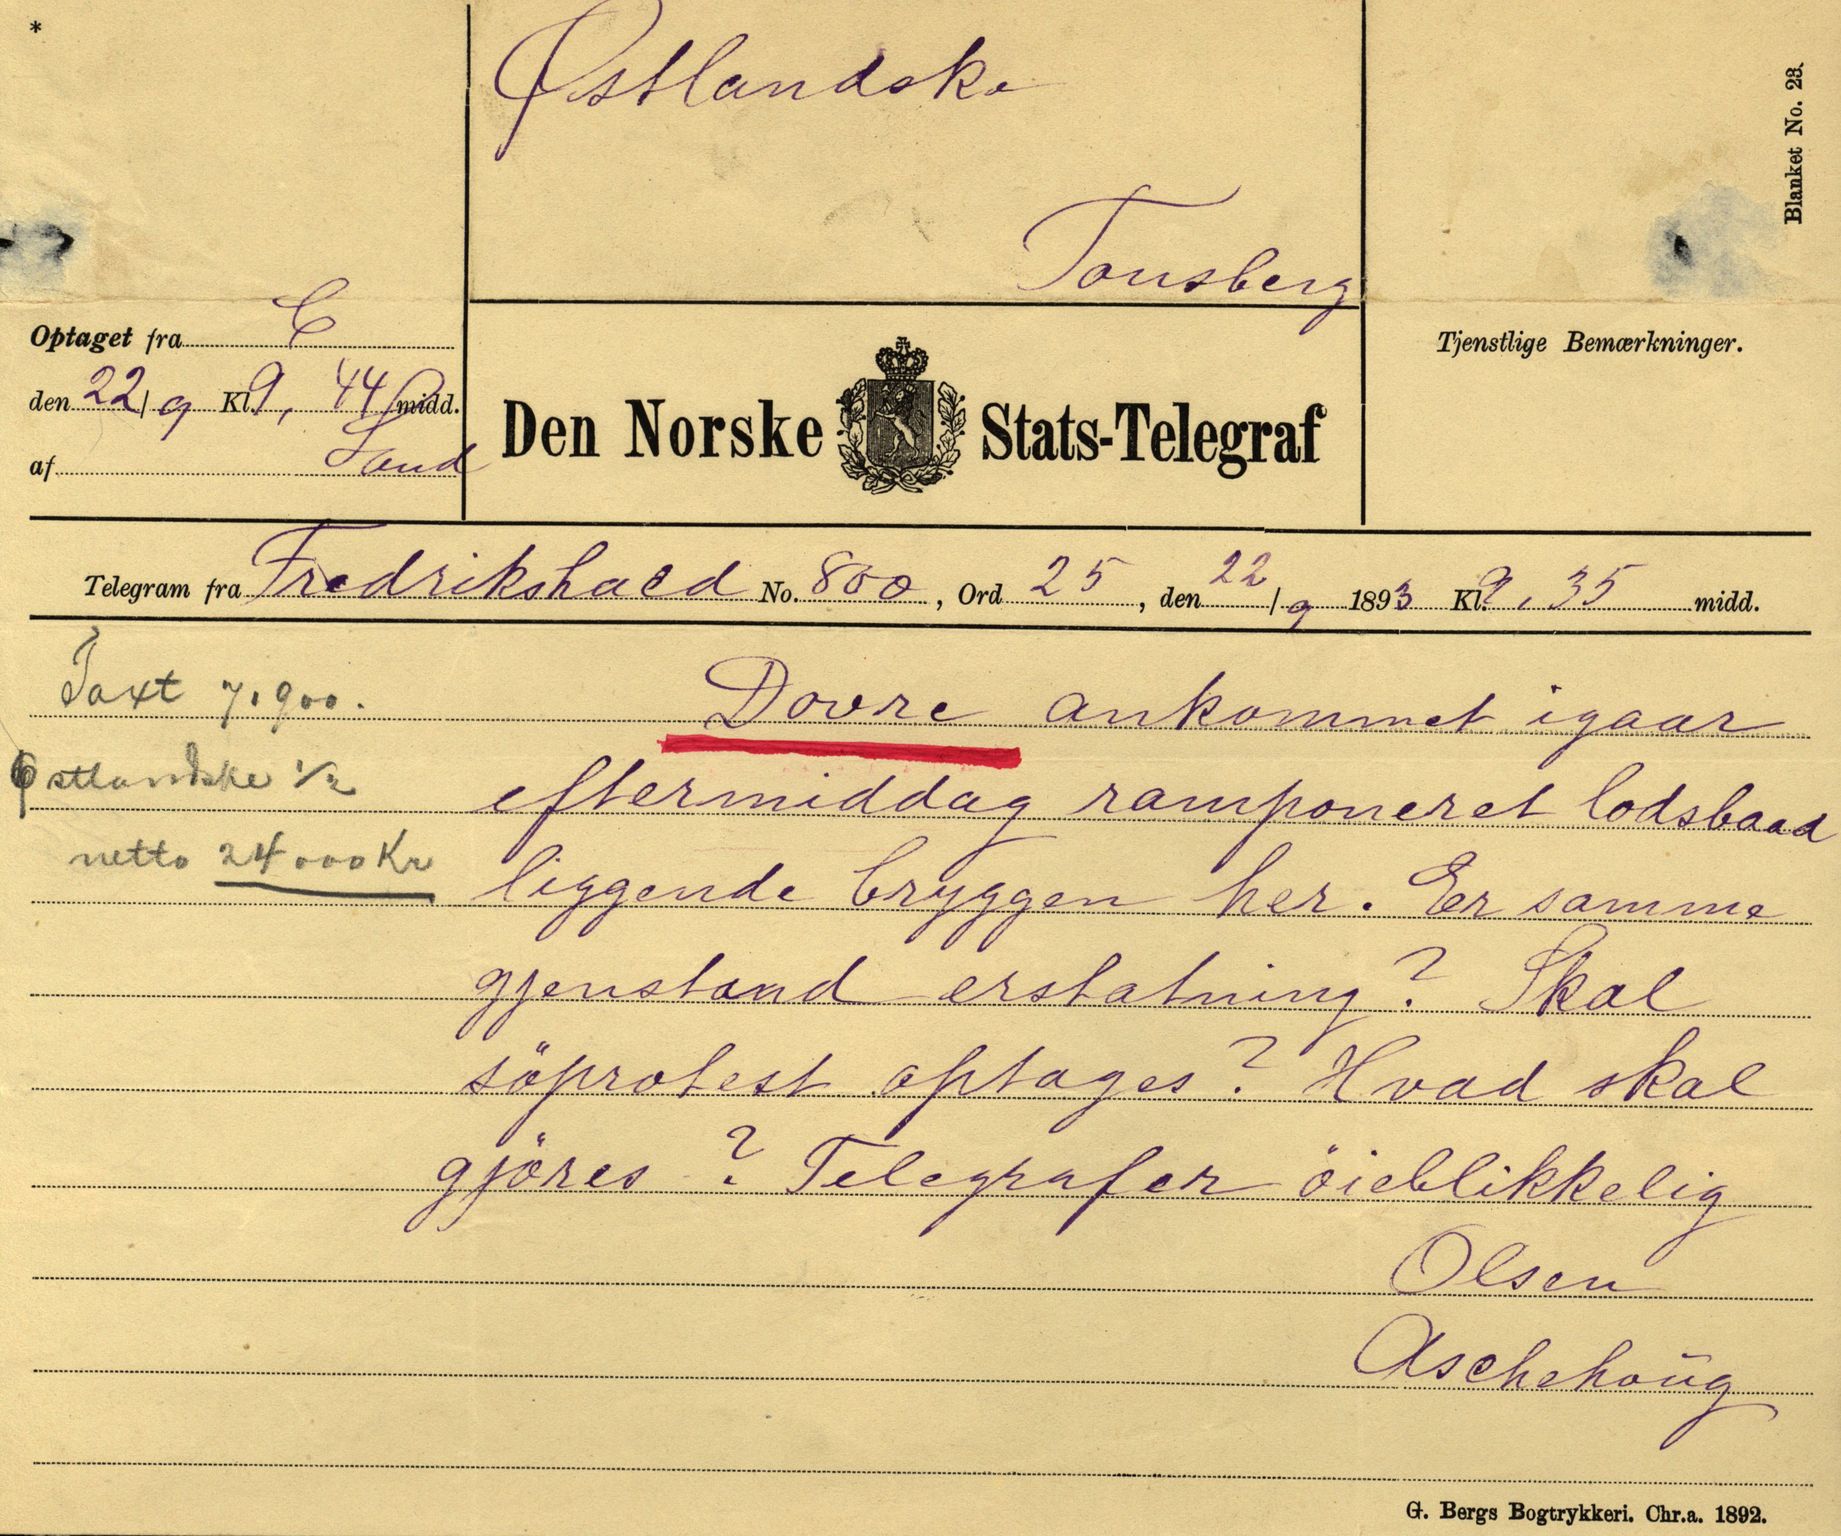 *
Østlandske
Tonsberg
Blanket No. 23.
Optaget fra C
den 22/9 Kl. 9, 44 midd.
af Sand
Den Norske Stats-Telegraf
Tjenstlige Bemærkninger.
Telegram fra Fredrikshald No. 800, Ord 25, den 22/9 1893 Kl. 9, 35 midd.
Taxt 7,900.
Østlandske 1/2
netto 24000 Kr
Dovre ankommet igaar
eftermiddag ramponeret lodsbaad
liggende bryggen her. Er samme
gjenstand erstatning? Skal
söprotest optages? Hvad skal
gjöres? Telegrafer öieblikkelig
Olsen
Aschehoug
G. Bergs Bogtrykkeri. Chr.a. 1892.